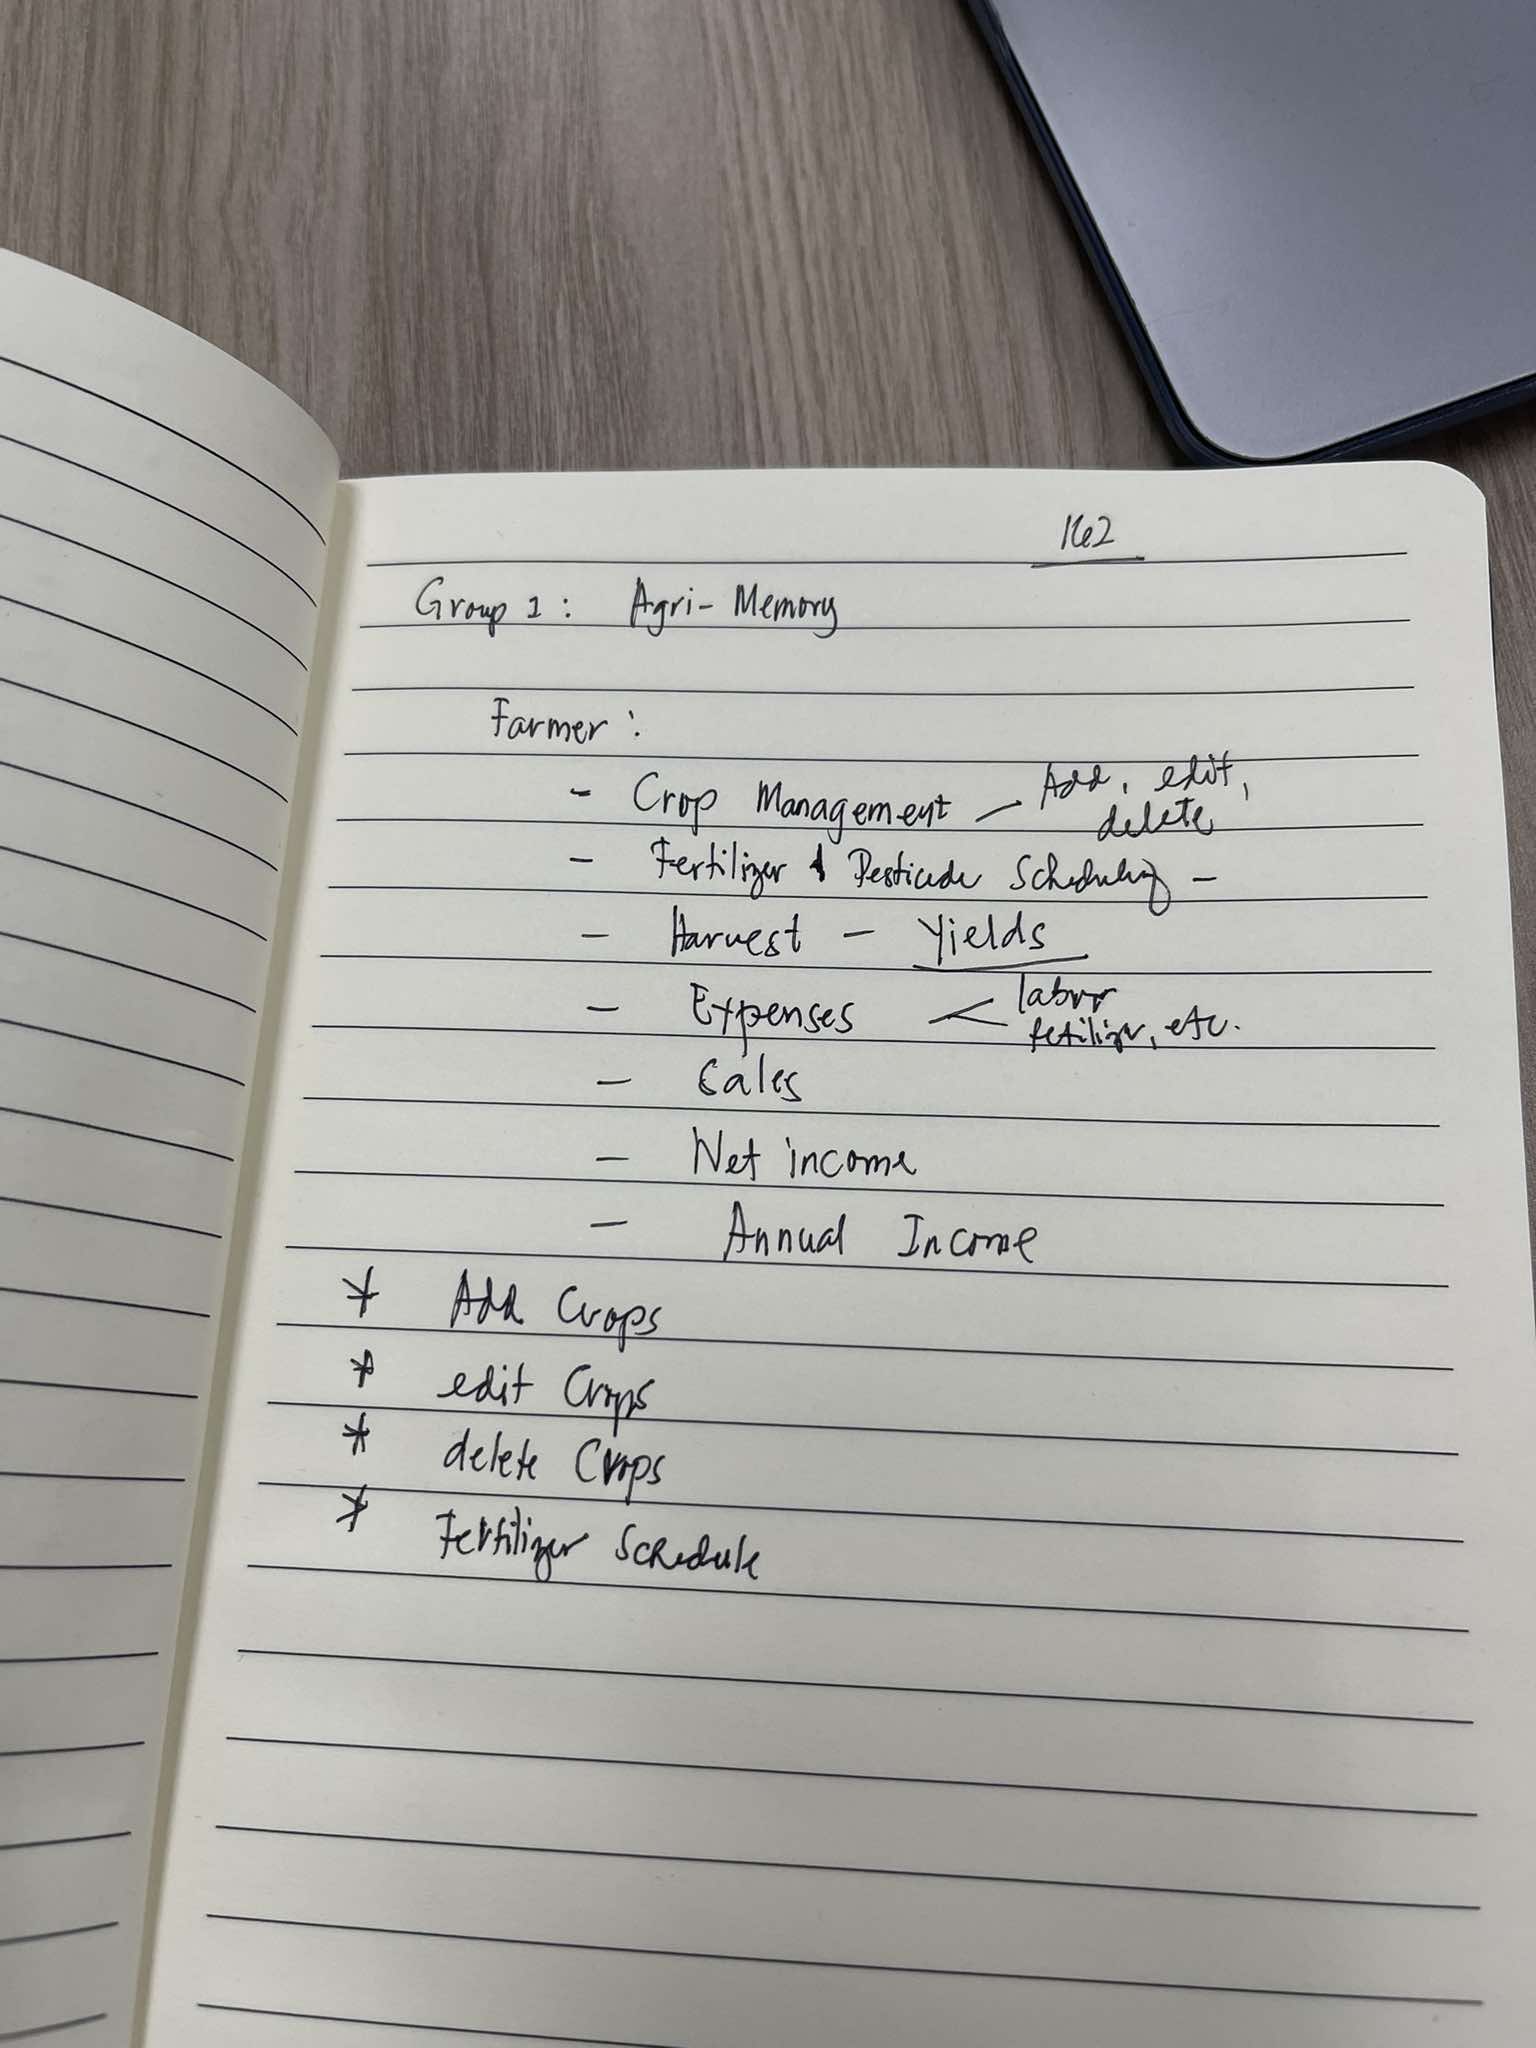 Group 1: Agri-Memory
Farmer:
- Crop Management - Add, edit,
delete
- Fertilizer & Pesticide Scheduling -
- Harvest - Yields
- Expenses < labor
fetilizer, etc.
- Sales
- Net income
- Annual Income
* Add Crops
* edit Crops
* delete Crops
* Fertilizer Schedule